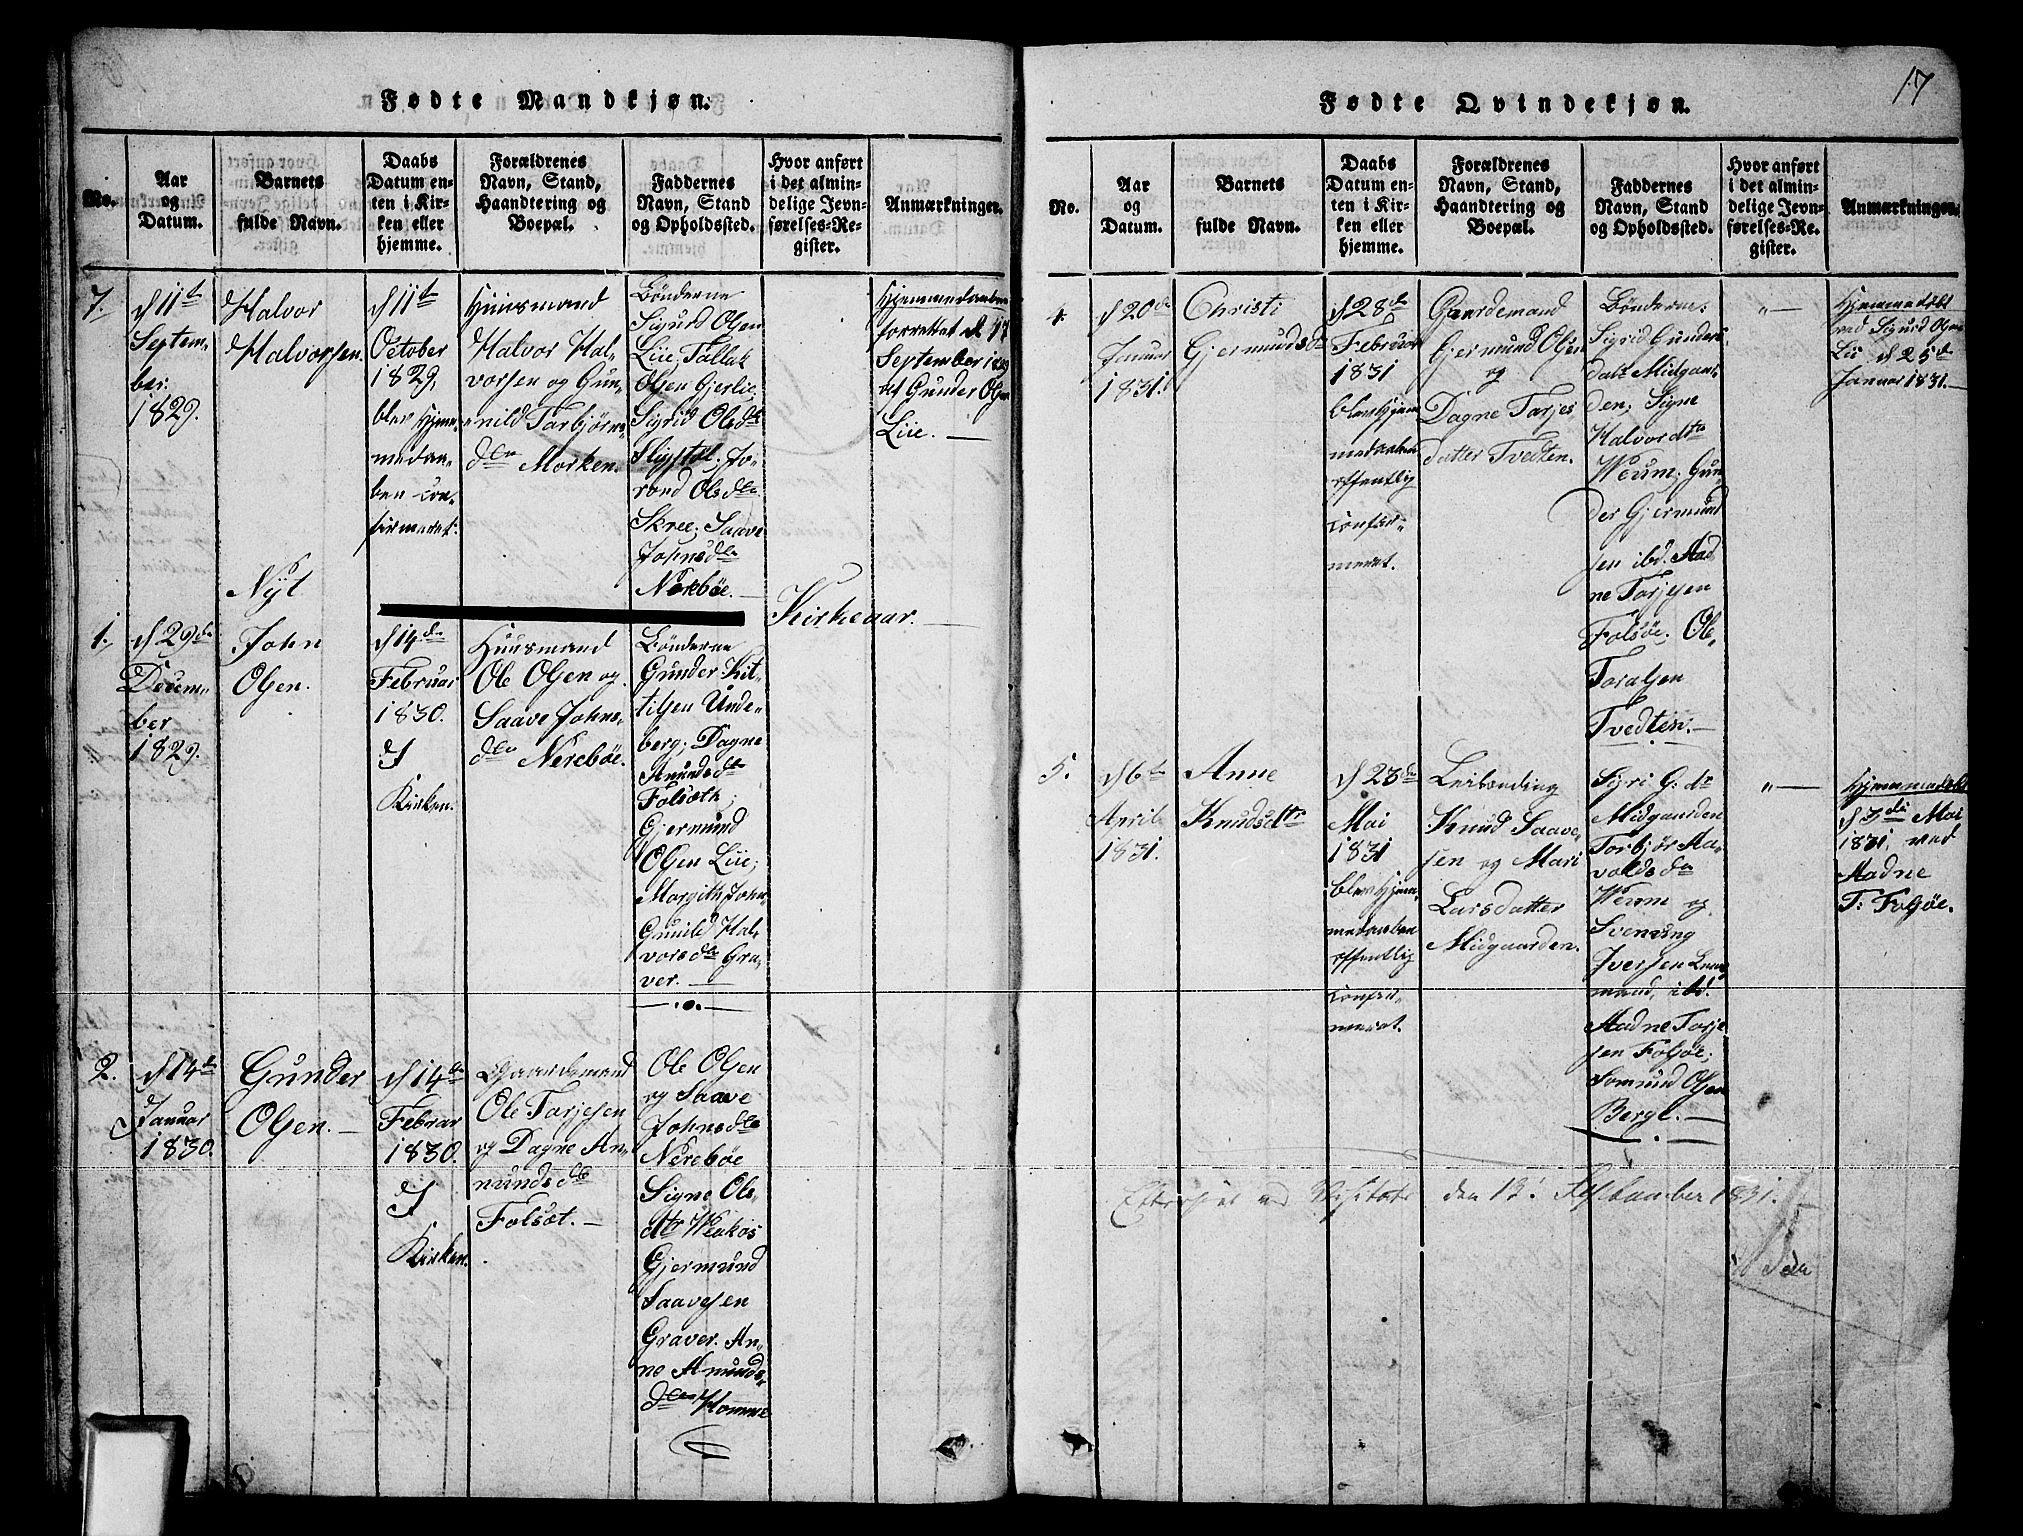 Fødte Mandkjøn.
No.
Aar
og
Datum.
Barnets
fulde Navn.
Daabs
Datum en-
ten i Kir-
ken eller
hjemme.
Forældrenes
Navn, Stand,
Haandtering og
Boepæl.
Faddernes
Navn, Stand
og Opholdssted.
Hvor anført
i det almin-
delige Jevn-
førelses-Re-
gister.
Anmærkninger.
7.
d 11te
Septem-
ber
1829.
Halvor
Halvorsen.
d 11te
October
1829,
blev hjem-
medaa-
ben con-
firmeret.
Huusmand
Halvor Hal-
vorsen og Gun-
nild Torbjørns-
dtr Morken.
Bønderne
Sigurd Olsen
Lie, Tallak
Olsen Gjerlie,
Sigrid Olsdtr
Sligstøl; Jo-
rond Olsdtr
Skree; Saave
Johnsdtr
Nerebøe.
Hjemmedaaben
forrettet d. 17
September 1829
af Gunder Olsen
Lie.
Nyt
Kirkeaar.
1.
d 29de
Decem-
ber
1829.
John
Olsen.
d 14de
Februar
1830.
I
Kirken.
Huusmand
Ole Olsen og
Saave Johns-
dtr Nerebøe.
Bønderne
Gunder Kit-
tilsen Unde-
berg; Dagne
Anundsdtr
Folsæth;
Gjermund
Olsen Lie;
Margith John-
Gunild Hal-
vorsdtr Gra-
ver.
2.
d 14de
Januar
1830.
Gunder
Olsen.
d 14de
Februar
1830.
I
Kirken.
Gaardemand
Ole Tarjesen
og Dagne An-
nundsdtr
Folsøt.
Ole Olsen
og Saave
Johnsdtr
Nerebøe
Signe Ols-
dtr
Gjermund
Saavesen
Graver. An-
ne Amunds-
dtr Homme
17
Fødte Qvindekjøn.
No.
Aar
og
Datum.
Barnets
fulde Navn.
Daabs
Datum en-
ten i Kir-
ken eller
hjemme.
Forældrenes
Navn, Stand,
Haandtering og
Boepæl.
Faddernes
Navn, Stand
og Opholdssted.
Hvor anført
i det almin-
delige Jevn-
førelses-Re-
gister.
Anmærkninger.
4.
d 20de
Januar
1831.
Christi
Gjermundsdtr
d 28de
Februar
1831
blev hjem
medaaben
offentlig
confir-
meret.
Gaardemand
Gjermund Olsen
og
Dagne Tarjes
datter Tvedten.
Bønderne:
Sigrid Gunders
datt Midgaar
den; Signe
Halvordtr
Weum; Gun-
der Gjermund
sen ibd. Aad
ne Tarjesen
Folsøe. Ole
Toralsen
Tvedten.
" —
Hjemmedøbt
ved Sigurd Olsen
Lie d 25de
Januar 1831.
5.
d 6te
April
1831.
Anne
Knudsdtr
d 23de
Mai
1831
blev hjem
medaaben
offentlig
confir-
meret.
Leilænding
Knud Saave-
sen og Mari
Larsdatter
Midgaarden.
Sigri G: dtr
Midgaarden
Torbjør Ha-
voldsdtr
Weum og
Svenung
Iversen
mand, ibd.
Aadne Tarje
sen Folsøe;
Somund Olsen
Berge.
" —
Hjemmedøbt
d 3de Mai
1831, ved
Aadne
T: Folsøe.
Efterseet ved Visitats den 13. September 1831.